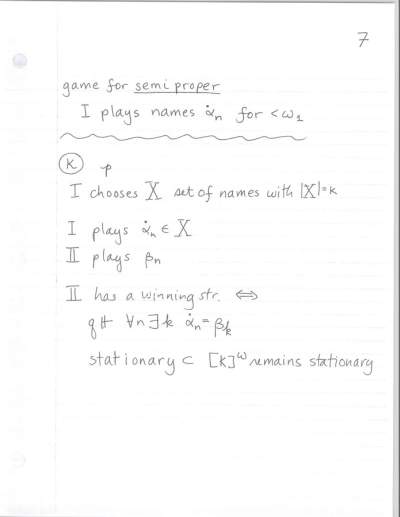 7
game for semiproper
I plays names α̇ₙ for < ω₁
Ⓚ p
I chooses X set of names with |X|=k
I plays α̇ₙ ∈ X
II plays βₙ
II has a winning str. ⟺
q ⊩ ∀n∃k α̇ₙ = βₖ
stationary ⊂ [k]^ω remains stationary